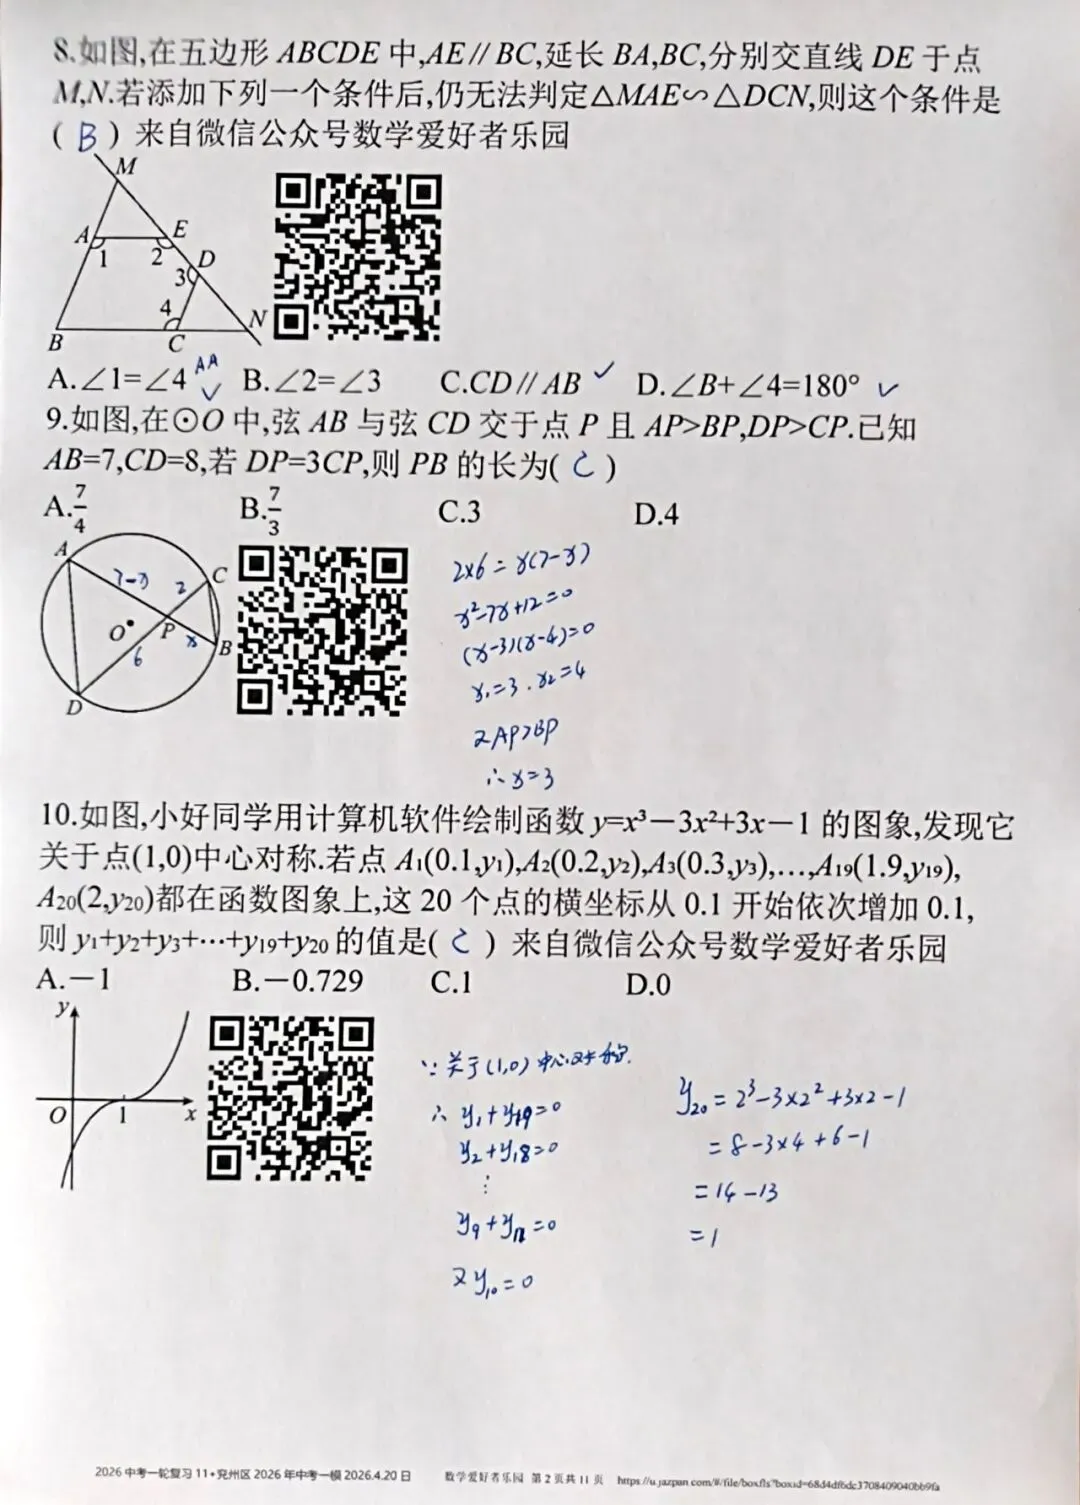 8.如图,在五边形 ABCDE 中,AE∥BC,延长 BA,BC,分别交直线 DE 于点
M,N.若添加下列一个条件后,仍无法判定△MAE∽△DCN,则这个条件是
( B ) 来自微信公众号数学爱好者乐园
M
A E
1 2 D
3
4 N
B C
AA
A.∠1=∠4 ✓ B.∠2=∠3 C.CD∥AB ✓ D.∠B+∠4=180° ✓
9.如图,在⊙O 中,弦 AB 与弦 CD 交于点 P 且 AP>BP,DP>CP.已知
AB=7,CD=8,若 DP=3CP,则 PB 的长为( C )
A.7/4 B.7/3 C.3 D.4
A
7-x 2 C
O P x B
6
D
2×6=x(7-x)
x²-7x+12=0
(x-3)(x-4)=0
x₁=3.x₂=4
又AP>BP
∴x=3
10.如图,小好同学用计算机软件绘制函数 y=x³-3x²+3x-1 的图象,发现它
关于点(1,0)中心对称.若点 A₁(0.1,y₁),A₂(0.2,y₂),A₃(0.3,y₃),…,A₁₉(1.9,y₁₉),
A₂₀(2,y₂₀)都在函数图象上,这 20 个点的横坐标从 0.1 开始依次增加 0.1,
则 y₁+y₂+y₃+…+y₁₉+y₂₀ 的值是( C ) 来自微信公众号数学爱好者乐园
A.-1 B.-0.729 C.1 D.0
y
O 1 x
∵关于(1,0)中心对称.
∴ y₁+y₁₉=0
y₂+y₁₈=0
⋮
y₉+y₁₁=0
又y₁₀=0
y₂₀=2³-3×2²+3×2-1
=8-3×4+6-1
=14-13
=1
2026 中考一轮复习 11•兖州区 2026 年中考一模 2026.4.20 日 数学爱好者乐园 第 2 页共 11 页 https://u.jazpan.com/#/file/boxfls?boxid=68d4df6dc3708409040bb9fa